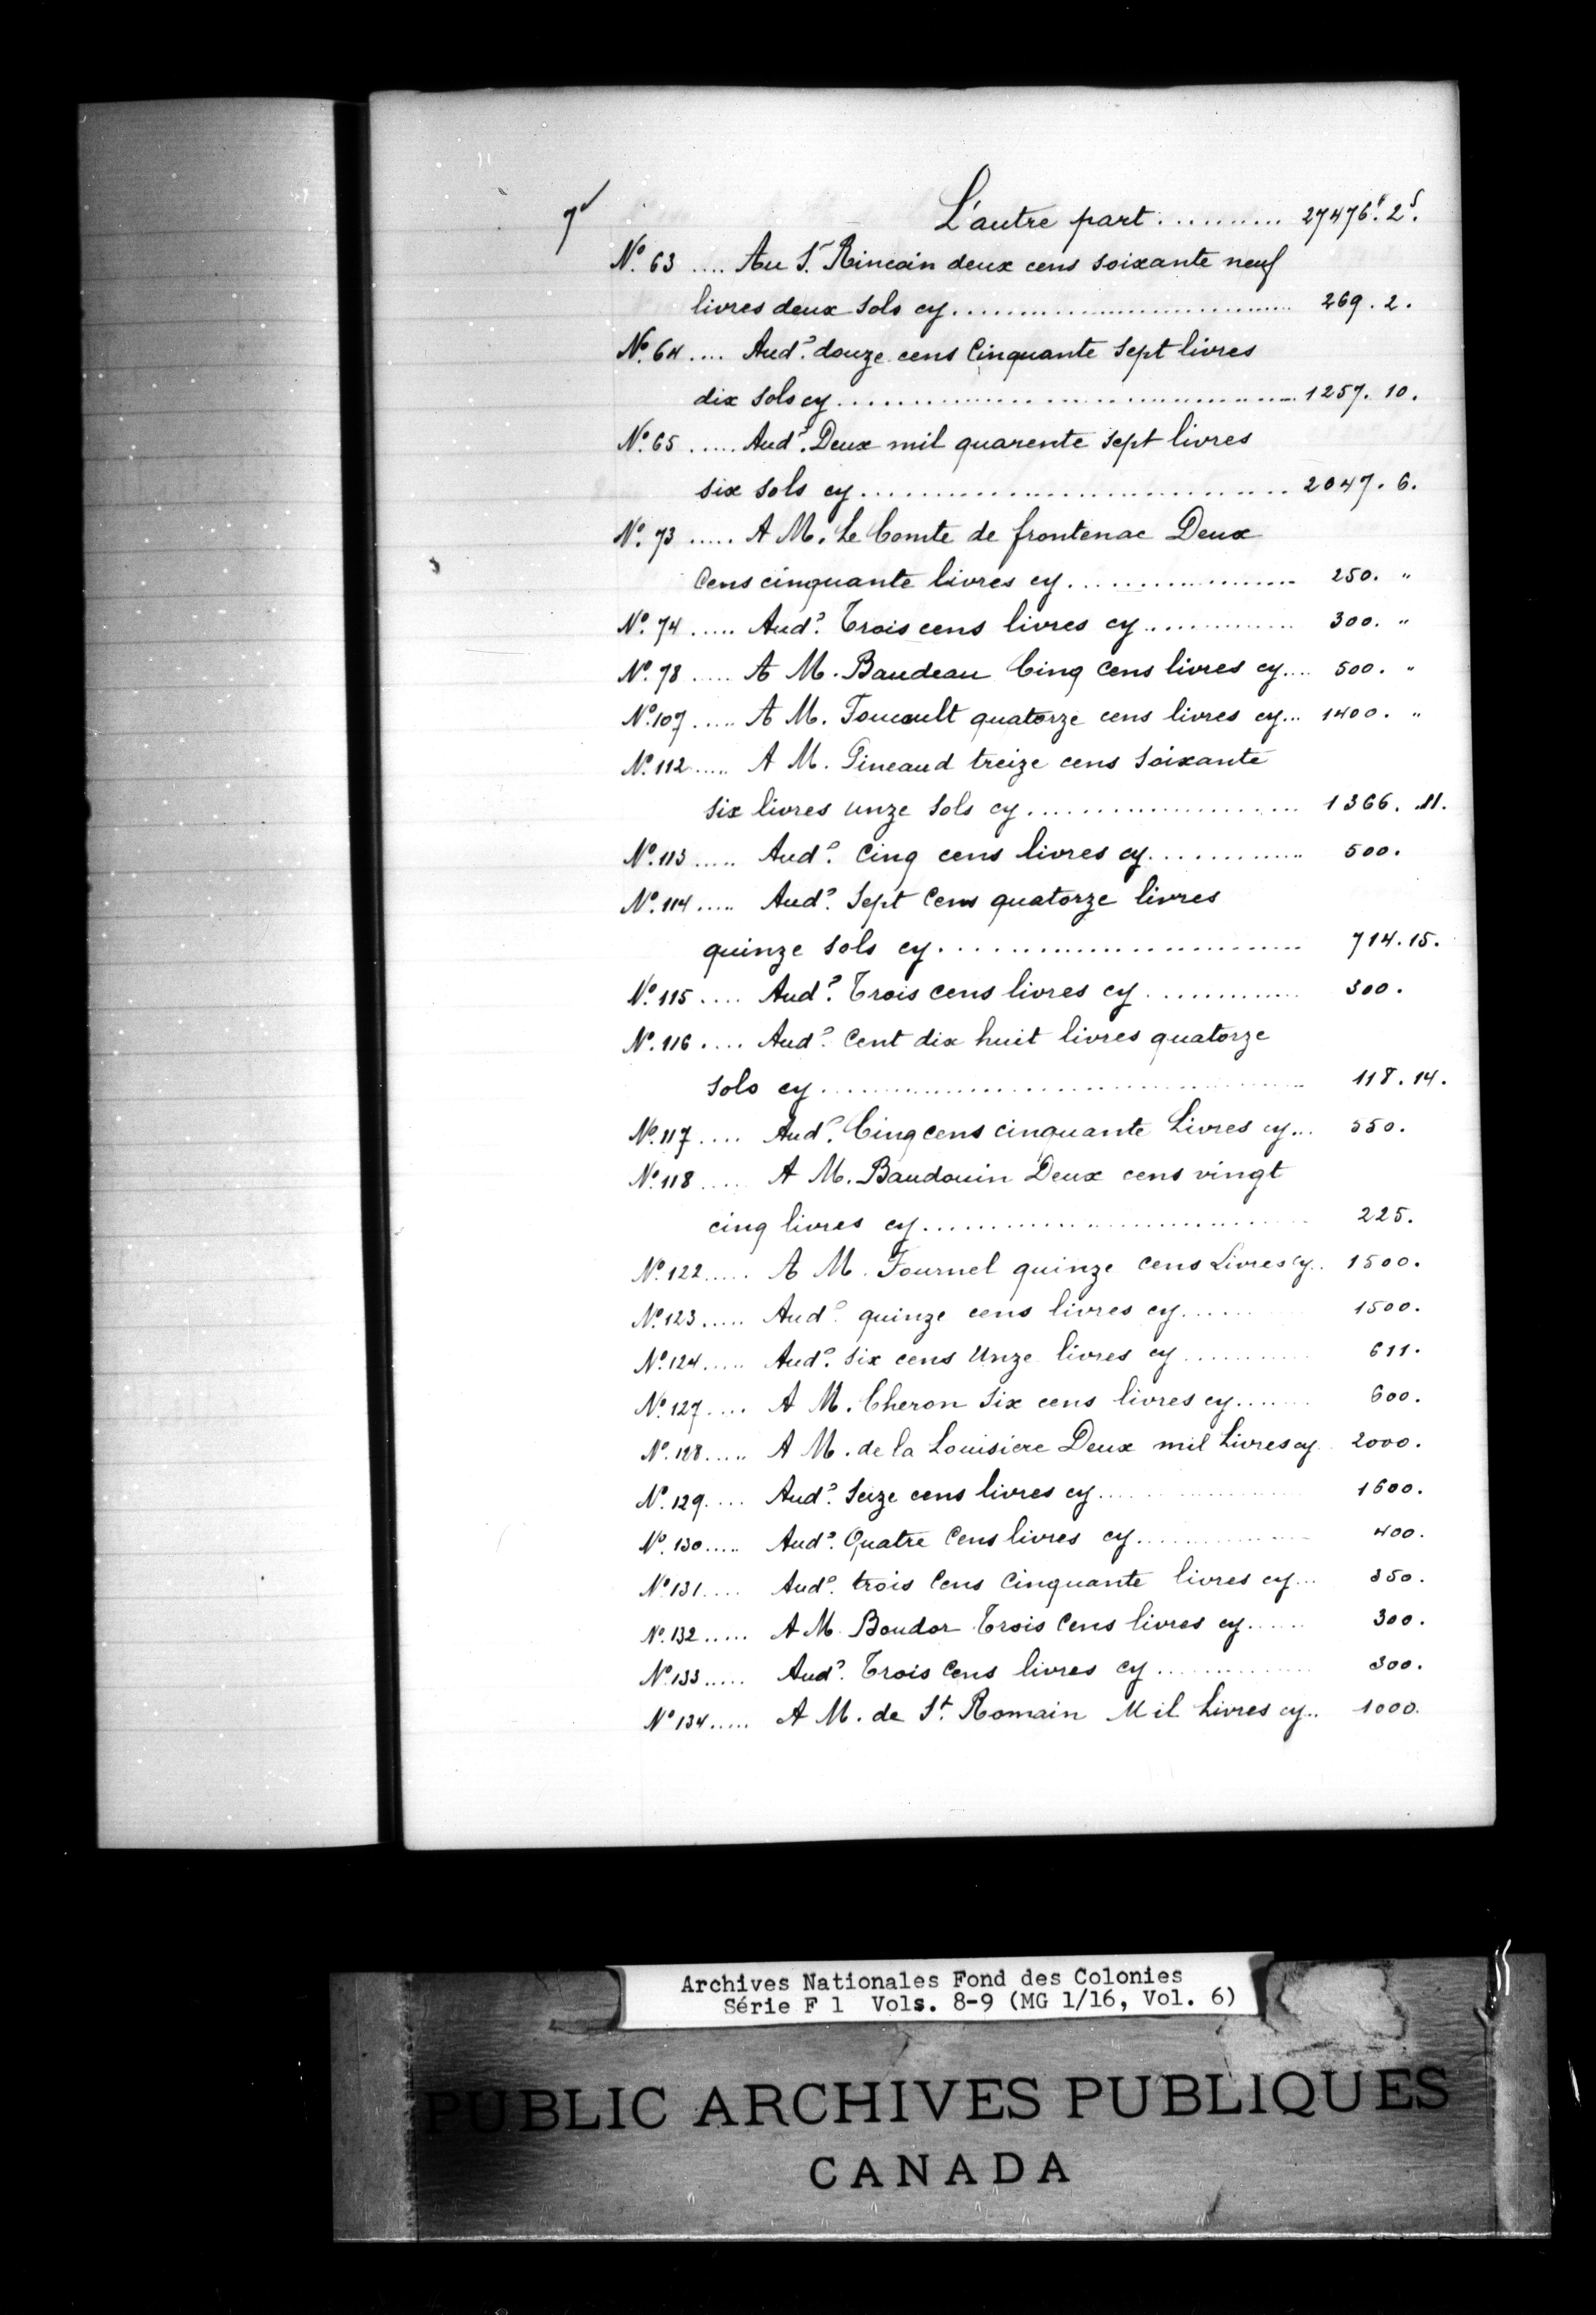 L'autre part ........... 27476# 2s.
No. 63 .... Au Sr. Rincoin deux cens soixante neuf
livres deux sols cy .............................. 269. 2.
No. 64 .... Audo. douze cens Cinquante sept livres
dix sols cy .............................. 1257. 10.
No. 65 ..... Audo. Deux mil quarente sept livres
six sols cy .............................. 2047. 6.
No. 73 ..... A M. Le Comte de frontenac Deux
Cens cinquante livres cy .................. 250. "
No. 74 ..... Audo. Trois cens livres cy .............. 300. "
No. 78 ..... A M. Baudeau Cinq Cens livres cy .... 500. "
No. 107 ..... A M. Foucault quatorze cens livres cy ... 1400. "
No. 112 ..... A M. Pineaud treize cens soixante
six livres unze sols cy ...................... 1366. 11.
No. 113 ..... Audo. Cinq cens livres cy ............. 500.
No. 114 ..... Audo. Sept Cens quatorze livres
quinze sols cy .......................... 714. 15.
No. 115 .... Audo. Trois cens livres cy ............. 300.
No. 116 .... Audo. Cent dix huit livres quatorze
sols cy .................................... 118. 14.
No. 117 .... Audo. Cinq cens cinquante Livres cy ... 550.
No. 118 ..... A M. Baudouin Deux cens vingt
cinq livres cy ............................ 225.
No. 122 ..... A M. Fournel quinze cens Livres cy .. 1500.
No. 123 ..... Audo. quinze cens livres cy ......... 1500.
No. 124 ..... Audo. six cens Unze livres cy ........... 611.
No. 127 .... A M. Cheron Six cens livres cy ....... 600.
No. 128 ..... A M. de la Louisiere Deux mil Livres cy 2000.
No. 129 .... Audo. Seize cens livres cy .................. 1600.
No. 130 ..... Audo. Quatre Cens livres cy ............... 400.
No. 131 .... Audo. trois Cens Cinquante livres cy ... 350.
No. 132 ..... A M. Boudor Trois Cens livres cy ...... 300.
No. 133 ..... Audo. Trois Cens livres cy ............. 300.
No. 134 ..... A M. de St. Romain Mil Livres cy .. 1000.
Archives Nationales Fond des Colonies
Série F 1 Vols. 8-9 (MG 1/16, Vol. 6)
PUBLIC ARCHIVES PUBLIQUES
CANADA